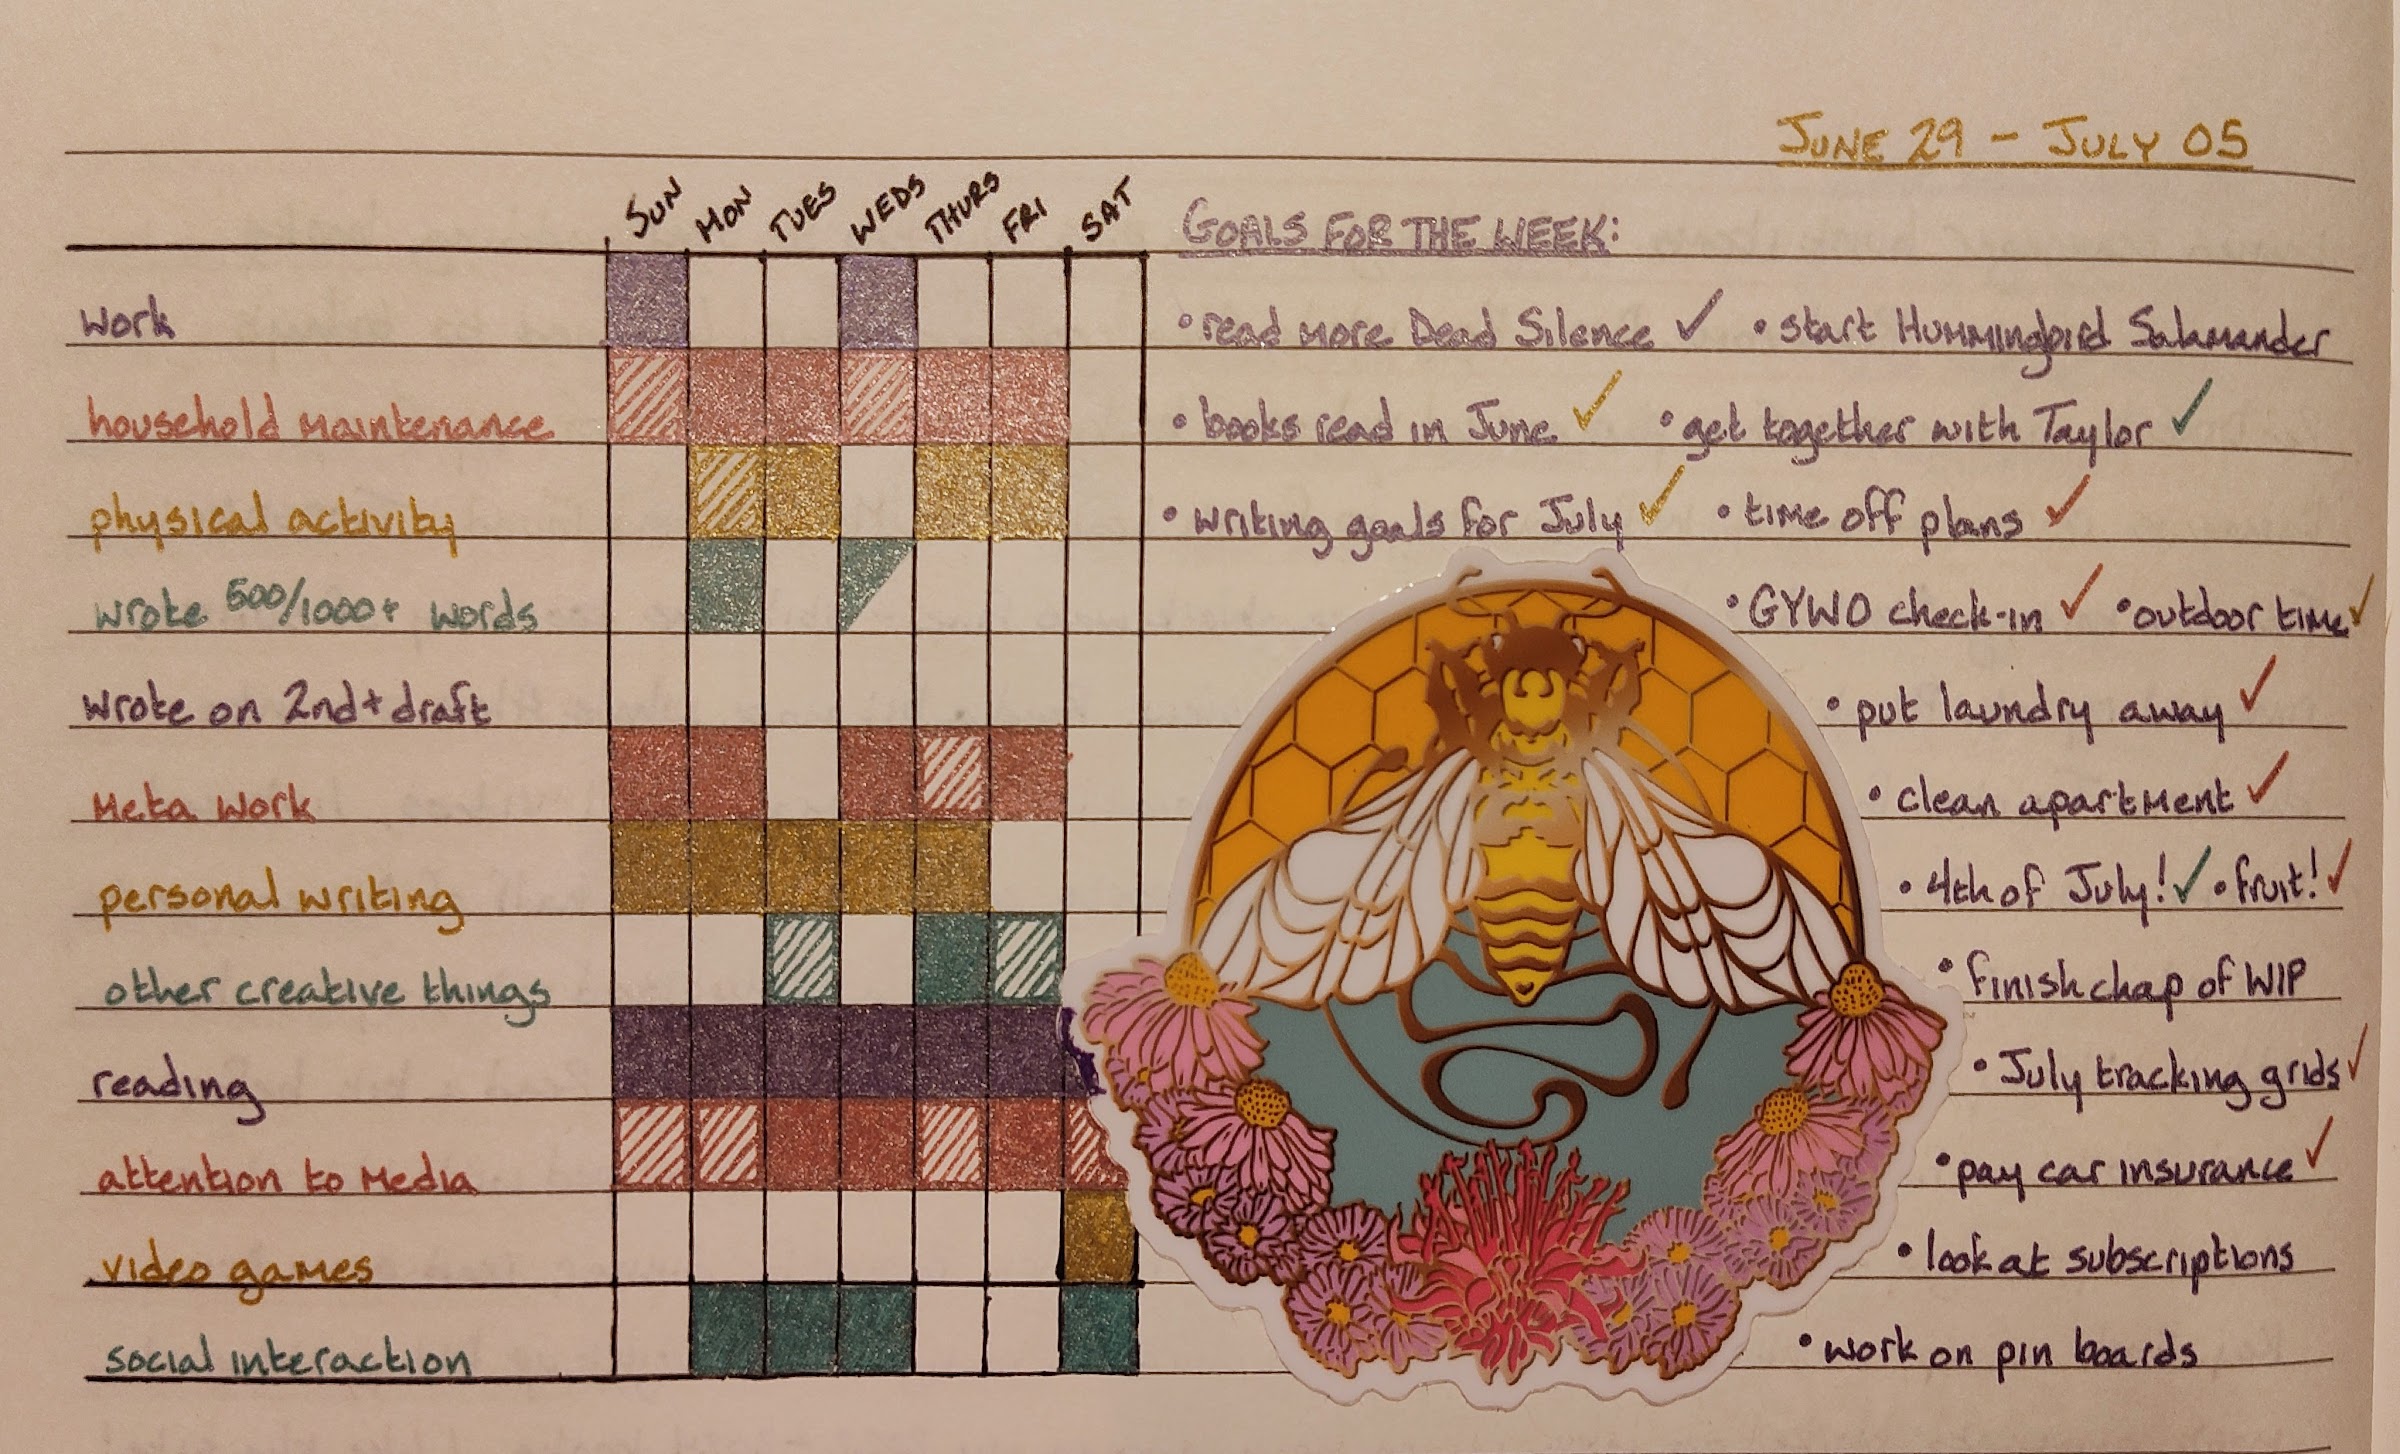 JUNE 29 - JULY 05
SUN MON TUES WEDS THURS FRI SAT
GOALS FOR THE WEEK:
work
• read more Dead Silence ✓ • start Hummingbird Salamander
household maintenance
• books read in June ✓ • get together with Taylor ✓
physical activity
• writing goals for July ✓ • time off plans ✓
wrote 500/1000+ words
• GYWO check-in ✓ • outdoor time ✓
wrote on 2nd+ draft
• put laundry away ✓
meta work
• clean apartment ✓
personal writing
• 4th of July! ✓ • fruit! ✓
other creative things
• finish chap of WIP
reading
• July tracking grids ✓
attention to media
• pay car insurance ✓
video games
• look at subscriptions
social interaction
• work on pin boards